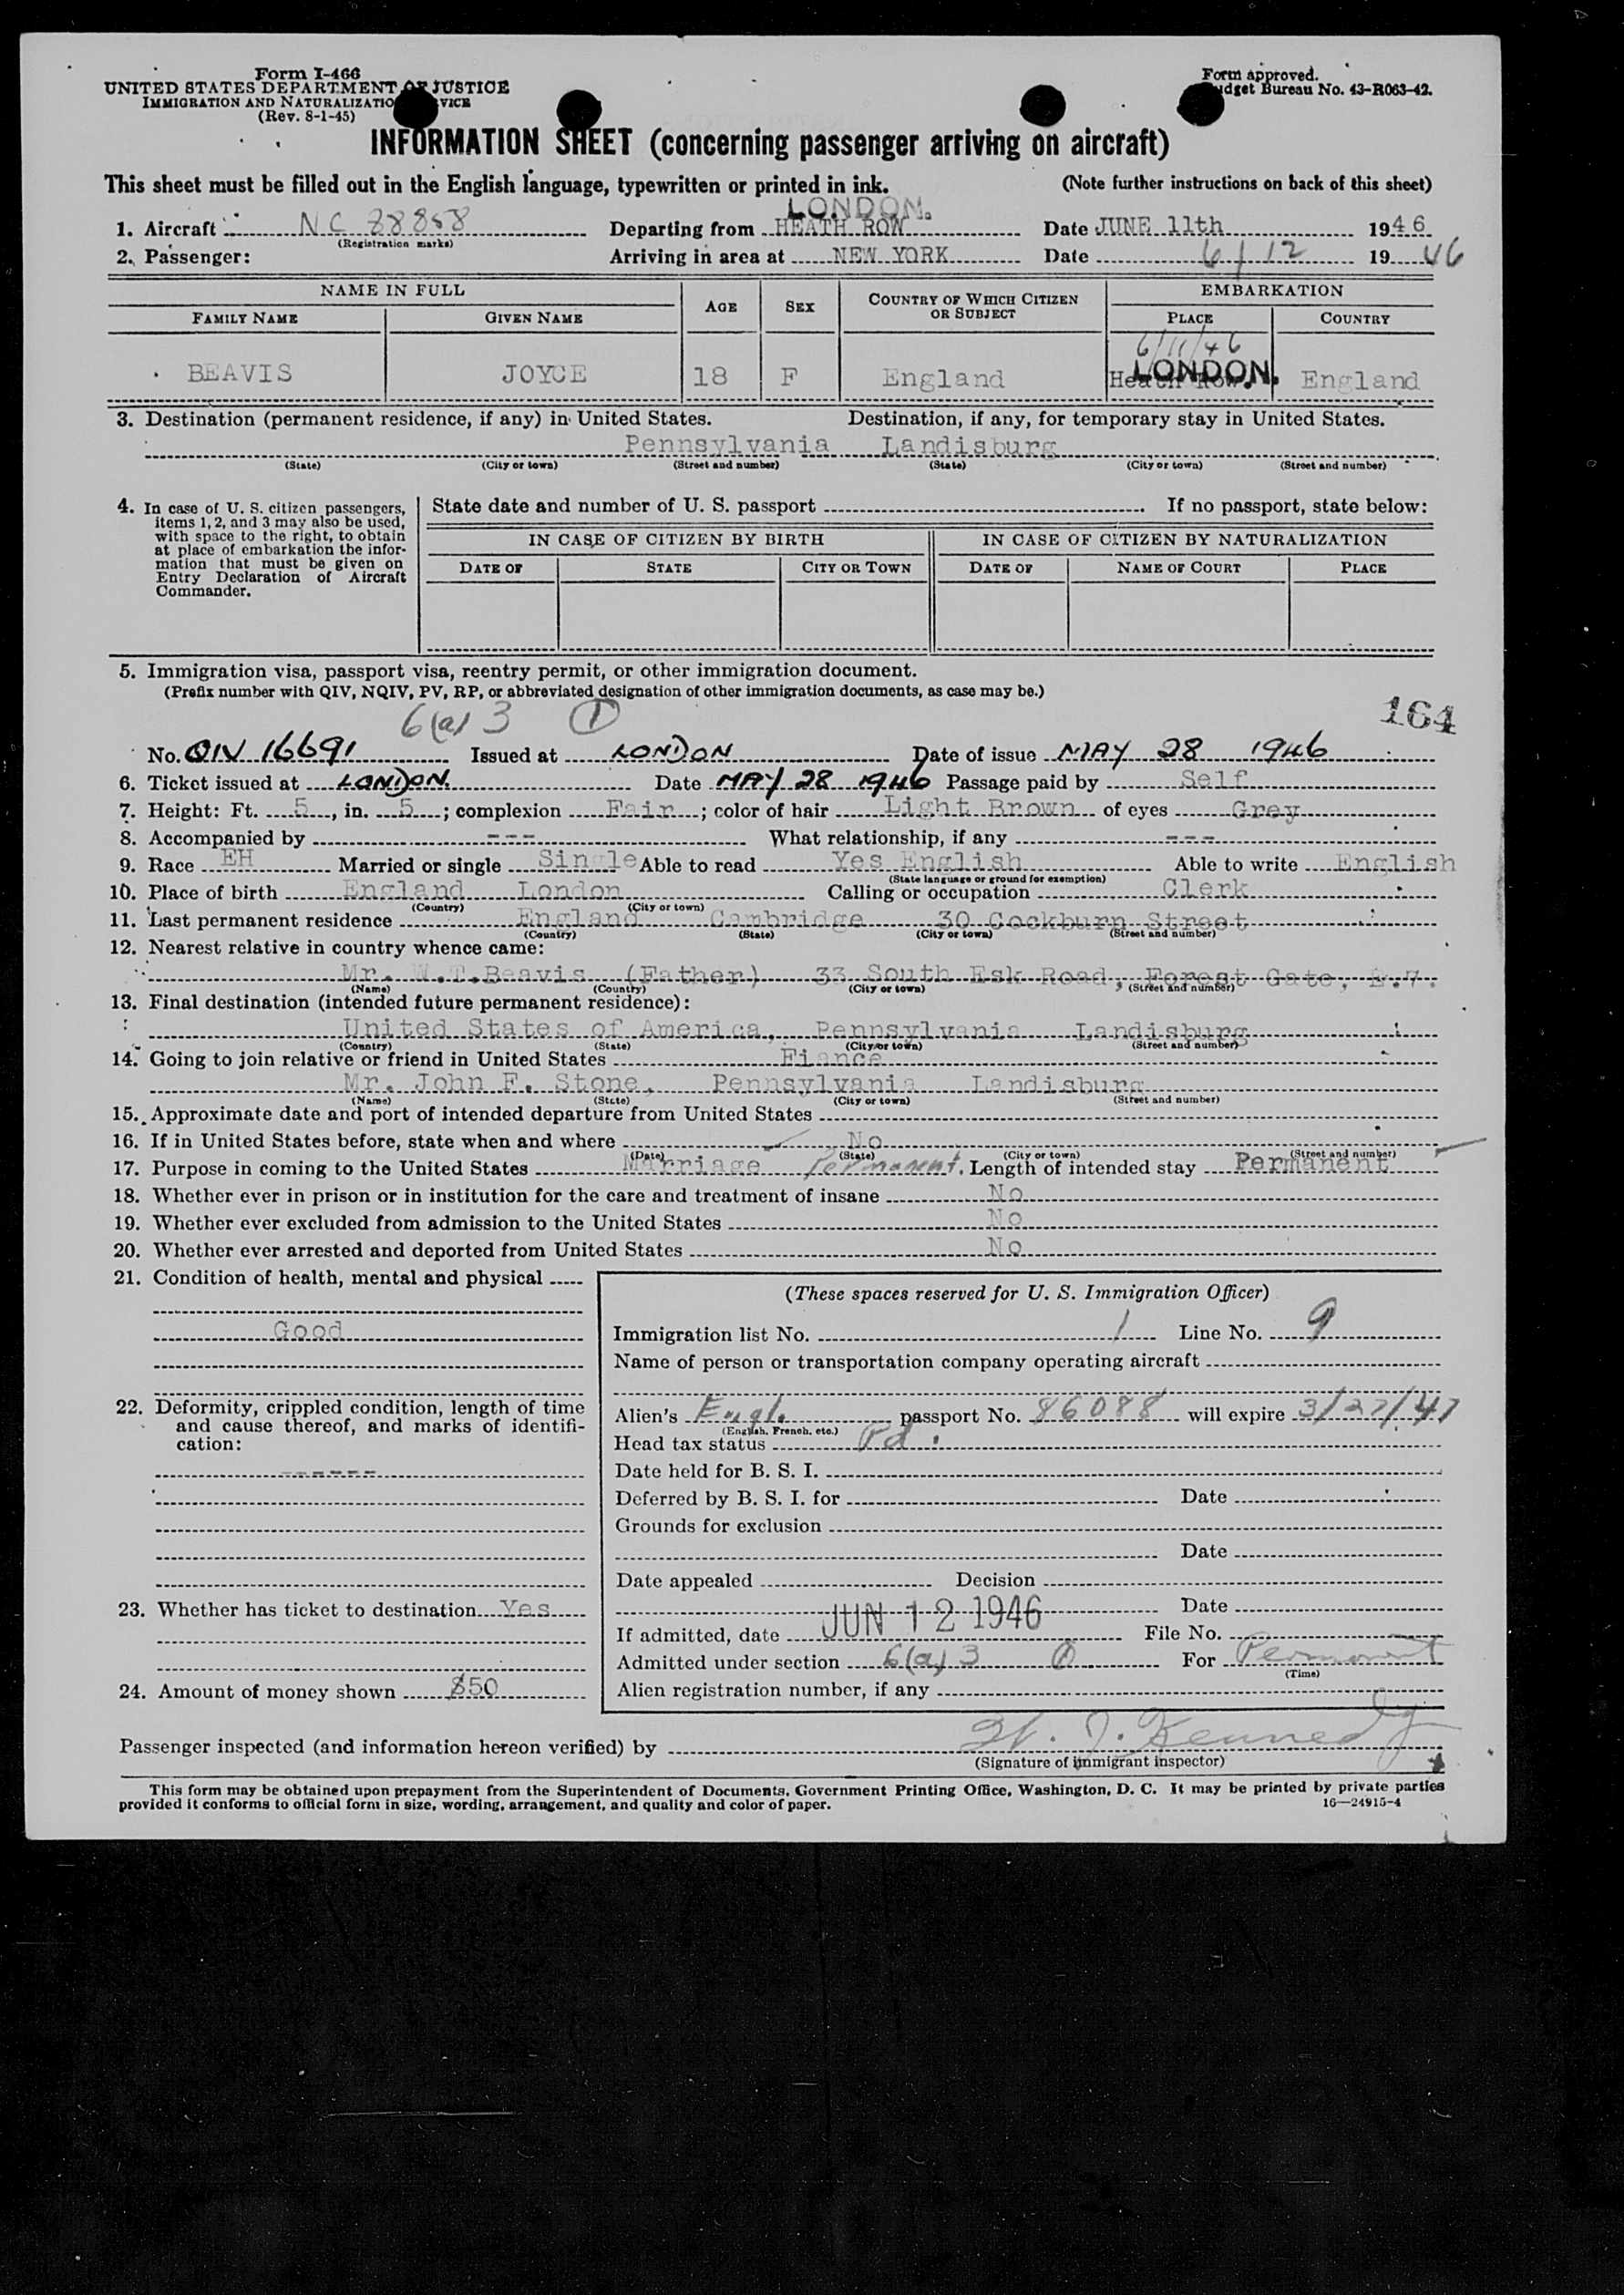 Form I-466
UNITED STATES DEPARTMENT OF JUSTICE
IMMIGRATION AND NATURALIZATION SERVICE
(Rev. 8-1-45)
Form approved.
Budget Bureau No. 43-R063-42.
INFORMATION SHEET (concerning passenger arriving on aircraft)
This sheet must be filled out in the English language, typewritten or printed in ink. (Note further instructions on back of this sheet)
LONDON.
1. Aircraft NC 88858 Departing from HEATH ROW Date JUNE 11th 1946
(Registration marks)
2. Passenger: Arriving in area at NEW YORK Date 6/12 1946
NAME IN FULL AGE SEX COUNTRY OF WHICH CITIZEN OR SUBJECT EMBARKATION
FAMILY NAME GIVEN NAME PLACE COUNTRY
6/11/46
BEAVIS JOYCE 18 F England Heath Row. LONDON. England
3. Destination (permanent residence, if any) in United States. Destination, if any, for temporary stay in United States.
Pennsylvania Landisburg
(State) (City or town) (Street and number) (State) (City or town) (Street and number)
4. In case of U. S. citizen passengers, items 1, 2, and 3 may also be used, with space to the right, to obtain at place of embarkation the information that must be given on Entry Declaration of Aircraft Commander.
State date and number of U. S. passport If no passport, state below:
IN CASE OF CITIZEN BY BIRTH IN CASE OF CITIZEN BY NATURALIZATION
DATE OF STATE CITY OR TOWN DATE OF NAME OF COURT PLACE
5. Immigration visa, passport visa, reentry permit, or other immigration document.
(Prefix number with QIV, NQIV, PV, RP, or abbreviated designation of other immigration documents, as case may be.)
6(a)3 1 164
No. QIV 16691 Issued at LONDON Date of issue MAY 28 1946
6. Ticket issued at LONDON. Date MAY 28 1946 Passage paid by Self
7. Height: Ft. 5, in. 5; complexion Fair; color of hair Light Brown of eyes Grey
8. Accompanied by --- What relationship, if any ---
9. Race EH Married or single Single Able to read Yes English Able to write English
(State language or ground for exemption)
10. Place of birth England London Calling or occupation Clerk
(Country) (City or town)
11. Last permanent residence England Cambridge 30 Cockburn Street
(Country) (State) (City or town) (Street and number)
12. Nearest relative in country whence came:
Mr. W.T.Beavis (Father) 33 South Esk Road, Forest Gate, E.7.
(Name) (Country) (City or town) (Street and number)
13. Final destination (intended future permanent residence):
United States of America, Pennsylvania Landisburg
(Country) (State) (City or town) (Street and number)
14. Going to join relative or friend in United States Fiance
Mr. John F. Stone, Pennsylvania Landisburg
(Name) (State) (City or town) (Street and number)
15. Approximate date and port of intended departure from United States
16. If in United States before, state when and where No
(Date) (State) (City or town) (Street and number)
17. Purpose in coming to the United States Marriage Permanent. Length of intended stay Permanent
18. Whether ever in prison or in institution for the care and treatment of insane No
19. Whether ever excluded from admission to the United States No
20. Whether ever arrested and deported from United States No
21. Condition of health, mental and physical
Good
22. Deformity, crippled condition, length of time and cause thereof, and marks of identification:
------
23. Whether has ticket to destination Yes
24. Amount of money shown $50
(These spaces reserved for U. S. Immigration Officer)
Immigration list No. 1 Line No. 9
Name of person or transportation company operating aircraft
Alien's Engl. passport No. 86088 will expire 3/27/47
(English, French, etc.)
Head tax status Pd.
Date held for B. S. I.
Deferred by B. S. I. for Date
Grounds for exclusion
Date
Date appealed Decision
Date
If admitted, date JUN 12 1946 File No.
Admitted under section 6(a)3 1 For Permanent
(Time)
Alien registration number, if any
Passenger inspected (and information hereon verified) by W. J. Kennedy
(Signature of immigrant inspector)
This form may be obtained upon prepayment from the Superintendent of Documents, Government Printing Office, Washington, D. C. It may be printed by private parties
provided it conforms to official form in size, wording, arrangement, and quality and color of paper. 16—24915-4